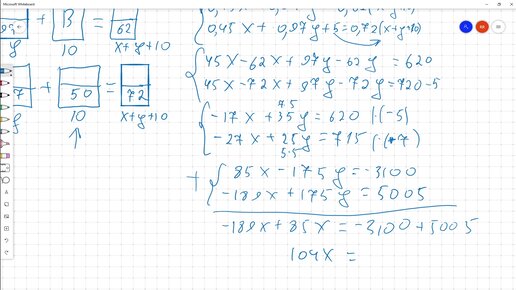 Microsoft Whiteboard
+ B = 62
y 10 x+y+10
0,45x + 0,97y+5=0,72(x+y+10)
45x-62x+97y-62y = 620
45x-72x+97y-72y=720-5
7 + 50 = 72
y 10 x+y+10
7.5
-17x+35y=620 |·(-5)
-27x+25y=715 |·(7)
5.5
+ 85x-175y=-3100
-189x+175y=5005
-189x+85x=-3100+5005
104x =